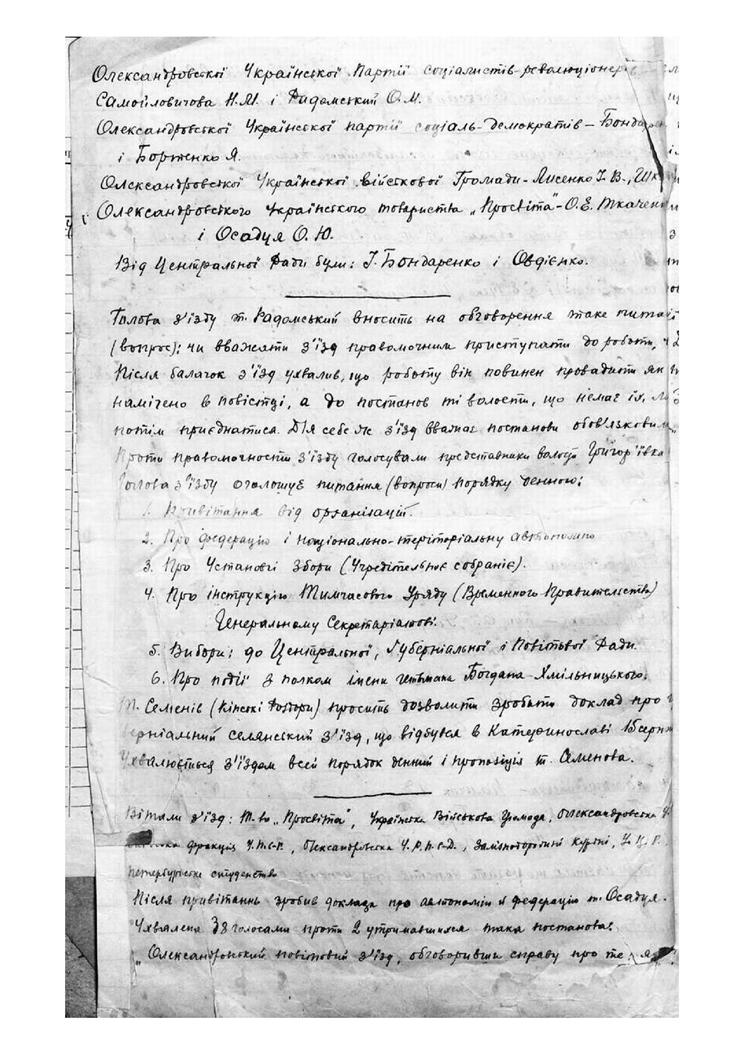 Олександровської Української Партії соціалистів-революціонерів
Самойловичова Н.М. і Радомський О.М.
Олександровської Української партії соціаль-демократів – Бондарен
і Борженко Я.
Олександровської Української військової Громади – Лисенко І. В.,
Олександровського Українського товариства „Просвіта" – О.Е. Ткаченко
і Осадця О. Ю.
Від Центральної Ради були: І. Бондаренко і Овдієнко.
Голова з'їзду т. Радомський вносить на обговорення таке питан
(вопрос): чи вважати з'їзд правомочним приступати до роботи,
Після балачок з'їзд ухвалив, що роботу він повинен провадити як
намічено в повістці, а до постанов ті волости, що немає їх,
потім приєднатися. Для себе ж з'їзд вважає постанови обов'язковим
Проти правомочности з'їзду голосували представники волости Григор'ївка
Голова з'їзду оголошує питання (вопроси) порядку денного:
1. Привітання від організацій.
2. Про федерацію і національно-територіальну автономію
3. Про Установчі збори (Учредітельноє собраніє).
4. Про інструкцію Тимчасового Уряду (Временного Правительства)
Генеральному Секретаріатові.
5. Вибори: до Центральної, Губерніальної і Повітової Ради.
6. Про події з полком імени гетьмана Богдана Хмільницького.
Т. Семенів (Кінські Роздори) просить дозволити зробити доклад про
верніальний селянський з'їзд, що відбувся в Катеринославі 15 серпн
Ухвалюється з'їздом весь порядок денний і пропозиція т. Семенова.
Вітали з'їзд: Т-во „Просвіта", Українська Військова Громада, Олександровська
фракція У.П.С-Р., Олександровська У.Р.П.С-Д., Залізнодорожні Курені, У.Ц.Р.
петербурське студенство
Після привітаннь зробив доклада про автономію й федерацію т. Осадця.
Ухвалена 38 голосами проти 2 утримавшихся така постанова:
„Олександровский повітовий з'їзд, обговоривши справу про те, я